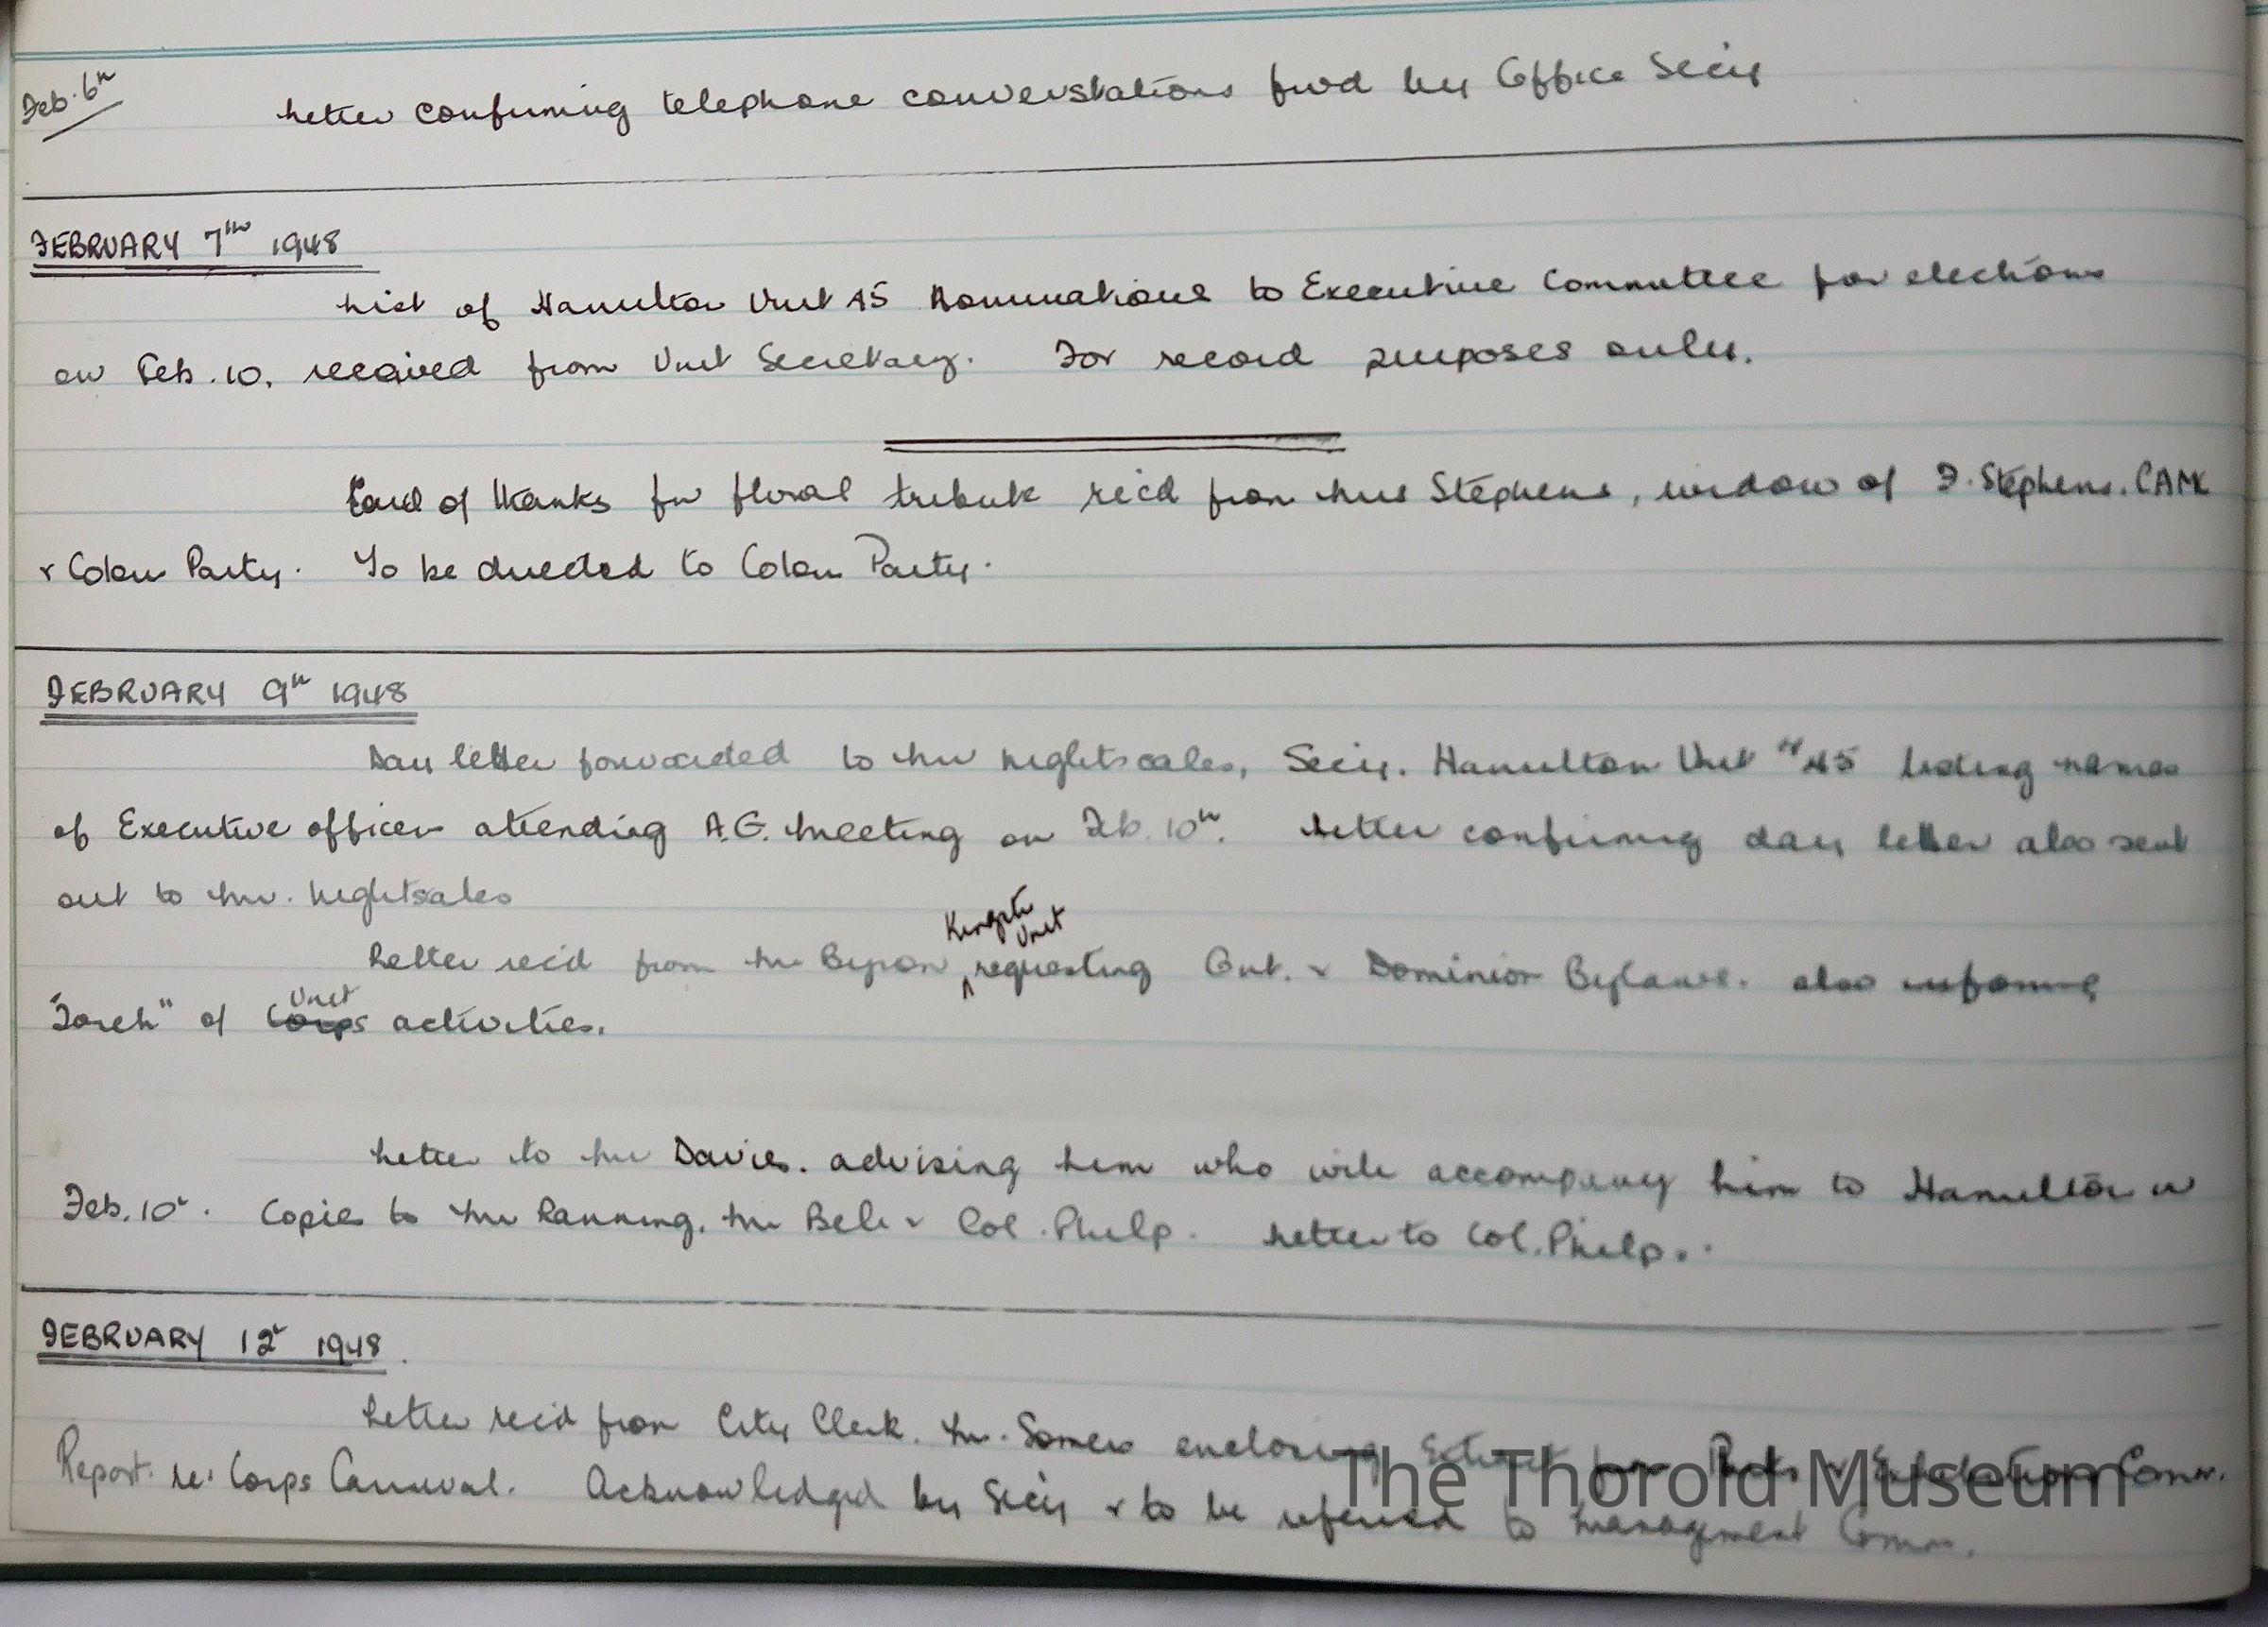 Feb. 6th
Letter confirming telephone converstations fwd by Office Secy
FEBRUARY 7TH 1948
List of Hamilton Unit 45 Nominations to Executive Committee for elections
on Feb. 10. received from Unit Secretary. For record purposes only.
Card of thanks for floral tribute rec'd from Mrs Stephens, widow of F. Stephens.
& Colour Party. To be directed to Colour Party.
FEBRUARY 9th 1948
Day letter forwarded to Mr Nightscales, Secy. Hamilton Unit #45 listing names
of Executive officers attending A.G. Meeting on Feb. 10th. Letter confirming day letter also sent
out to Mr. Nightsales
Kingston
Unit
Letter rec'd from Mr Byron requesting Ont. & Dominion Bylaws. also informing
Unit
"Torch" of Corps activities.
Letter to Mr Davies. advising him who will accompany him to Hamilton on
Feb. 10th. Copies to Mr Lanning, Mr Bell & Col. Philp. Letter to Col. Philp.
FEBRUARY 12th 1948.
Letter rec'd from City Clerk. Mr. Somers enclosing Extract from Parks & Exhibition Comm.
Report. re: Corps Carnival. Acknowledged by Secy & to be referred to Management Comm.
The Thorold Museum